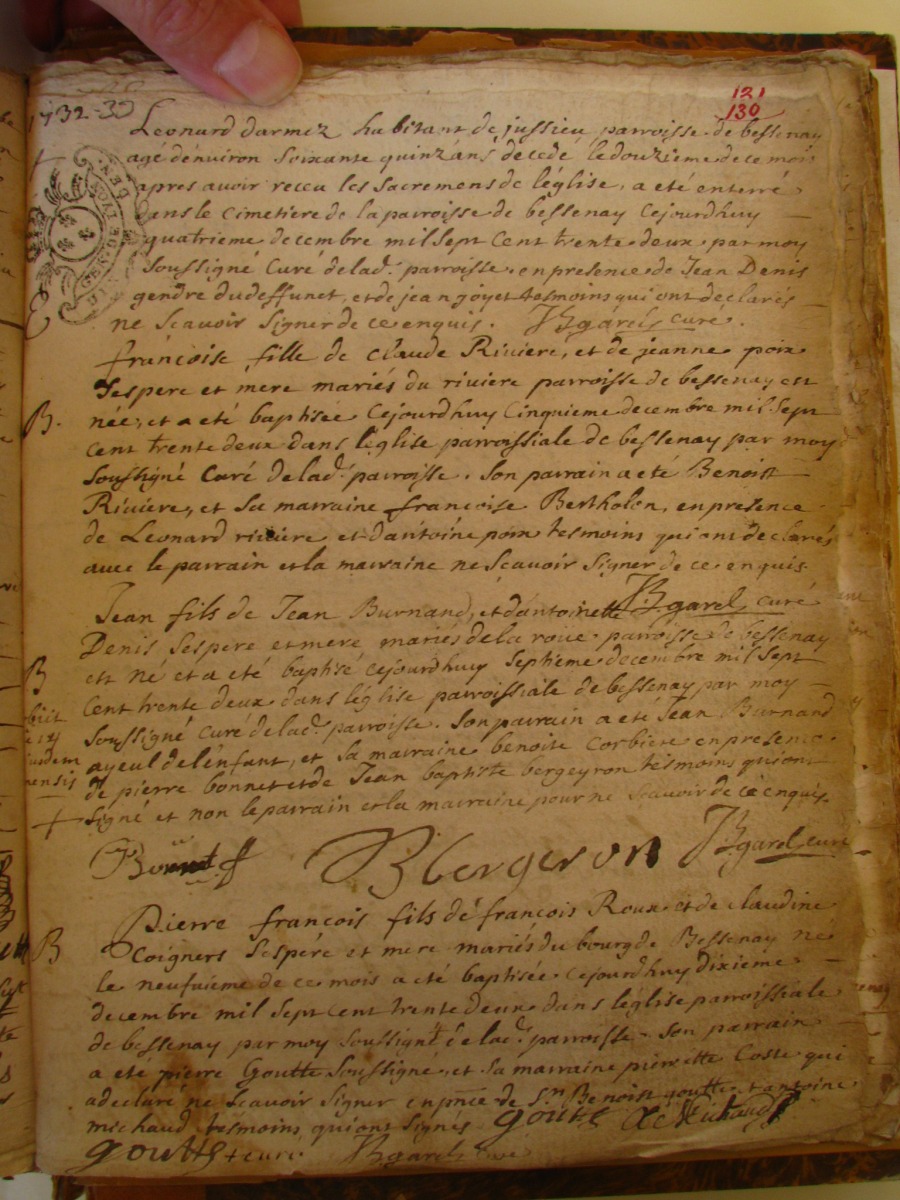 1732-33
121
130
Leonard darmez habitant de jussieu parroisse de bessenay
agé dénviron soixante quinz'ans decedé le douzieme de ce mois
apres avoir receu les sacremens de léglise, a eté enterré
dans le cimetiere de la parroisse de bessenay cejourdhuy
quatrieme decembre mil sept cent trente deux par moy
soussigné curé de lad. parroisse en presence de Jean Denis
gendre du deffunct, et de jean joyet tesmoins qui ont declarés
ne scavoir signer de ce enquis. curé.
françoise fille de claude Riviere, et de jeanne poix
ses pere et mere mariés du riviere parroisse de bessenay est
B. née, et a eté baptisée cejourdhuy cinquieme decembre mil sept
cent trente deux dans léglise parroissiale de bessenay par moy
soussigné curé de lad. parroisse. son parrain a eté Benoist
Riviere, et sa marraine francoise Bertholon, en presence
de Leonard riviere et dantoine poix tesmoins qui ont declarés
avec le parrain et la marraine ne scavoir signer de ce enquis.
curé
Jean fils de Jean Burnand, et dantoinette
Denis ses pere et mere mariés de la roüe parroisse de bessenay
B est né et a eté baptisé cejourdhuy septieme decembre mil sept
cent trente deux dans léglise parroissiale de bessenay par moy
soussigné curé de lad. parroisse. son parrain a eté Jean Burnand
ayeul de lénfant, et sa marraine benoite corbiere en presence
de pierre bonnet et de Jean baptiste bergeyron tesmoins qui ont
signé et non le parrain et la marraine pour ne scavoir de ce enquis.
obiit
ejusdem
mensis
Bergeron curé
Pierre françois fils dé françois Roux et de claudine
B Coigners ses pére et mere mariés du bourg de Bessenay né
le neufvieme de ce mois a eté baptisée cejourdhuy dixieme
decembre mil sept cent trente deux dans léglise parroissiale
de bessenay par moy soussigné de lad. parroisse son parrain
a eté pierre Goutte soussigné et sa marraine pierrette Coste qui
a declaré ne scavoir signer en pnce de sr. Benoist goutte et antoine
michaud tesmoins qui ont signés goutte A Michaud
goutte curé